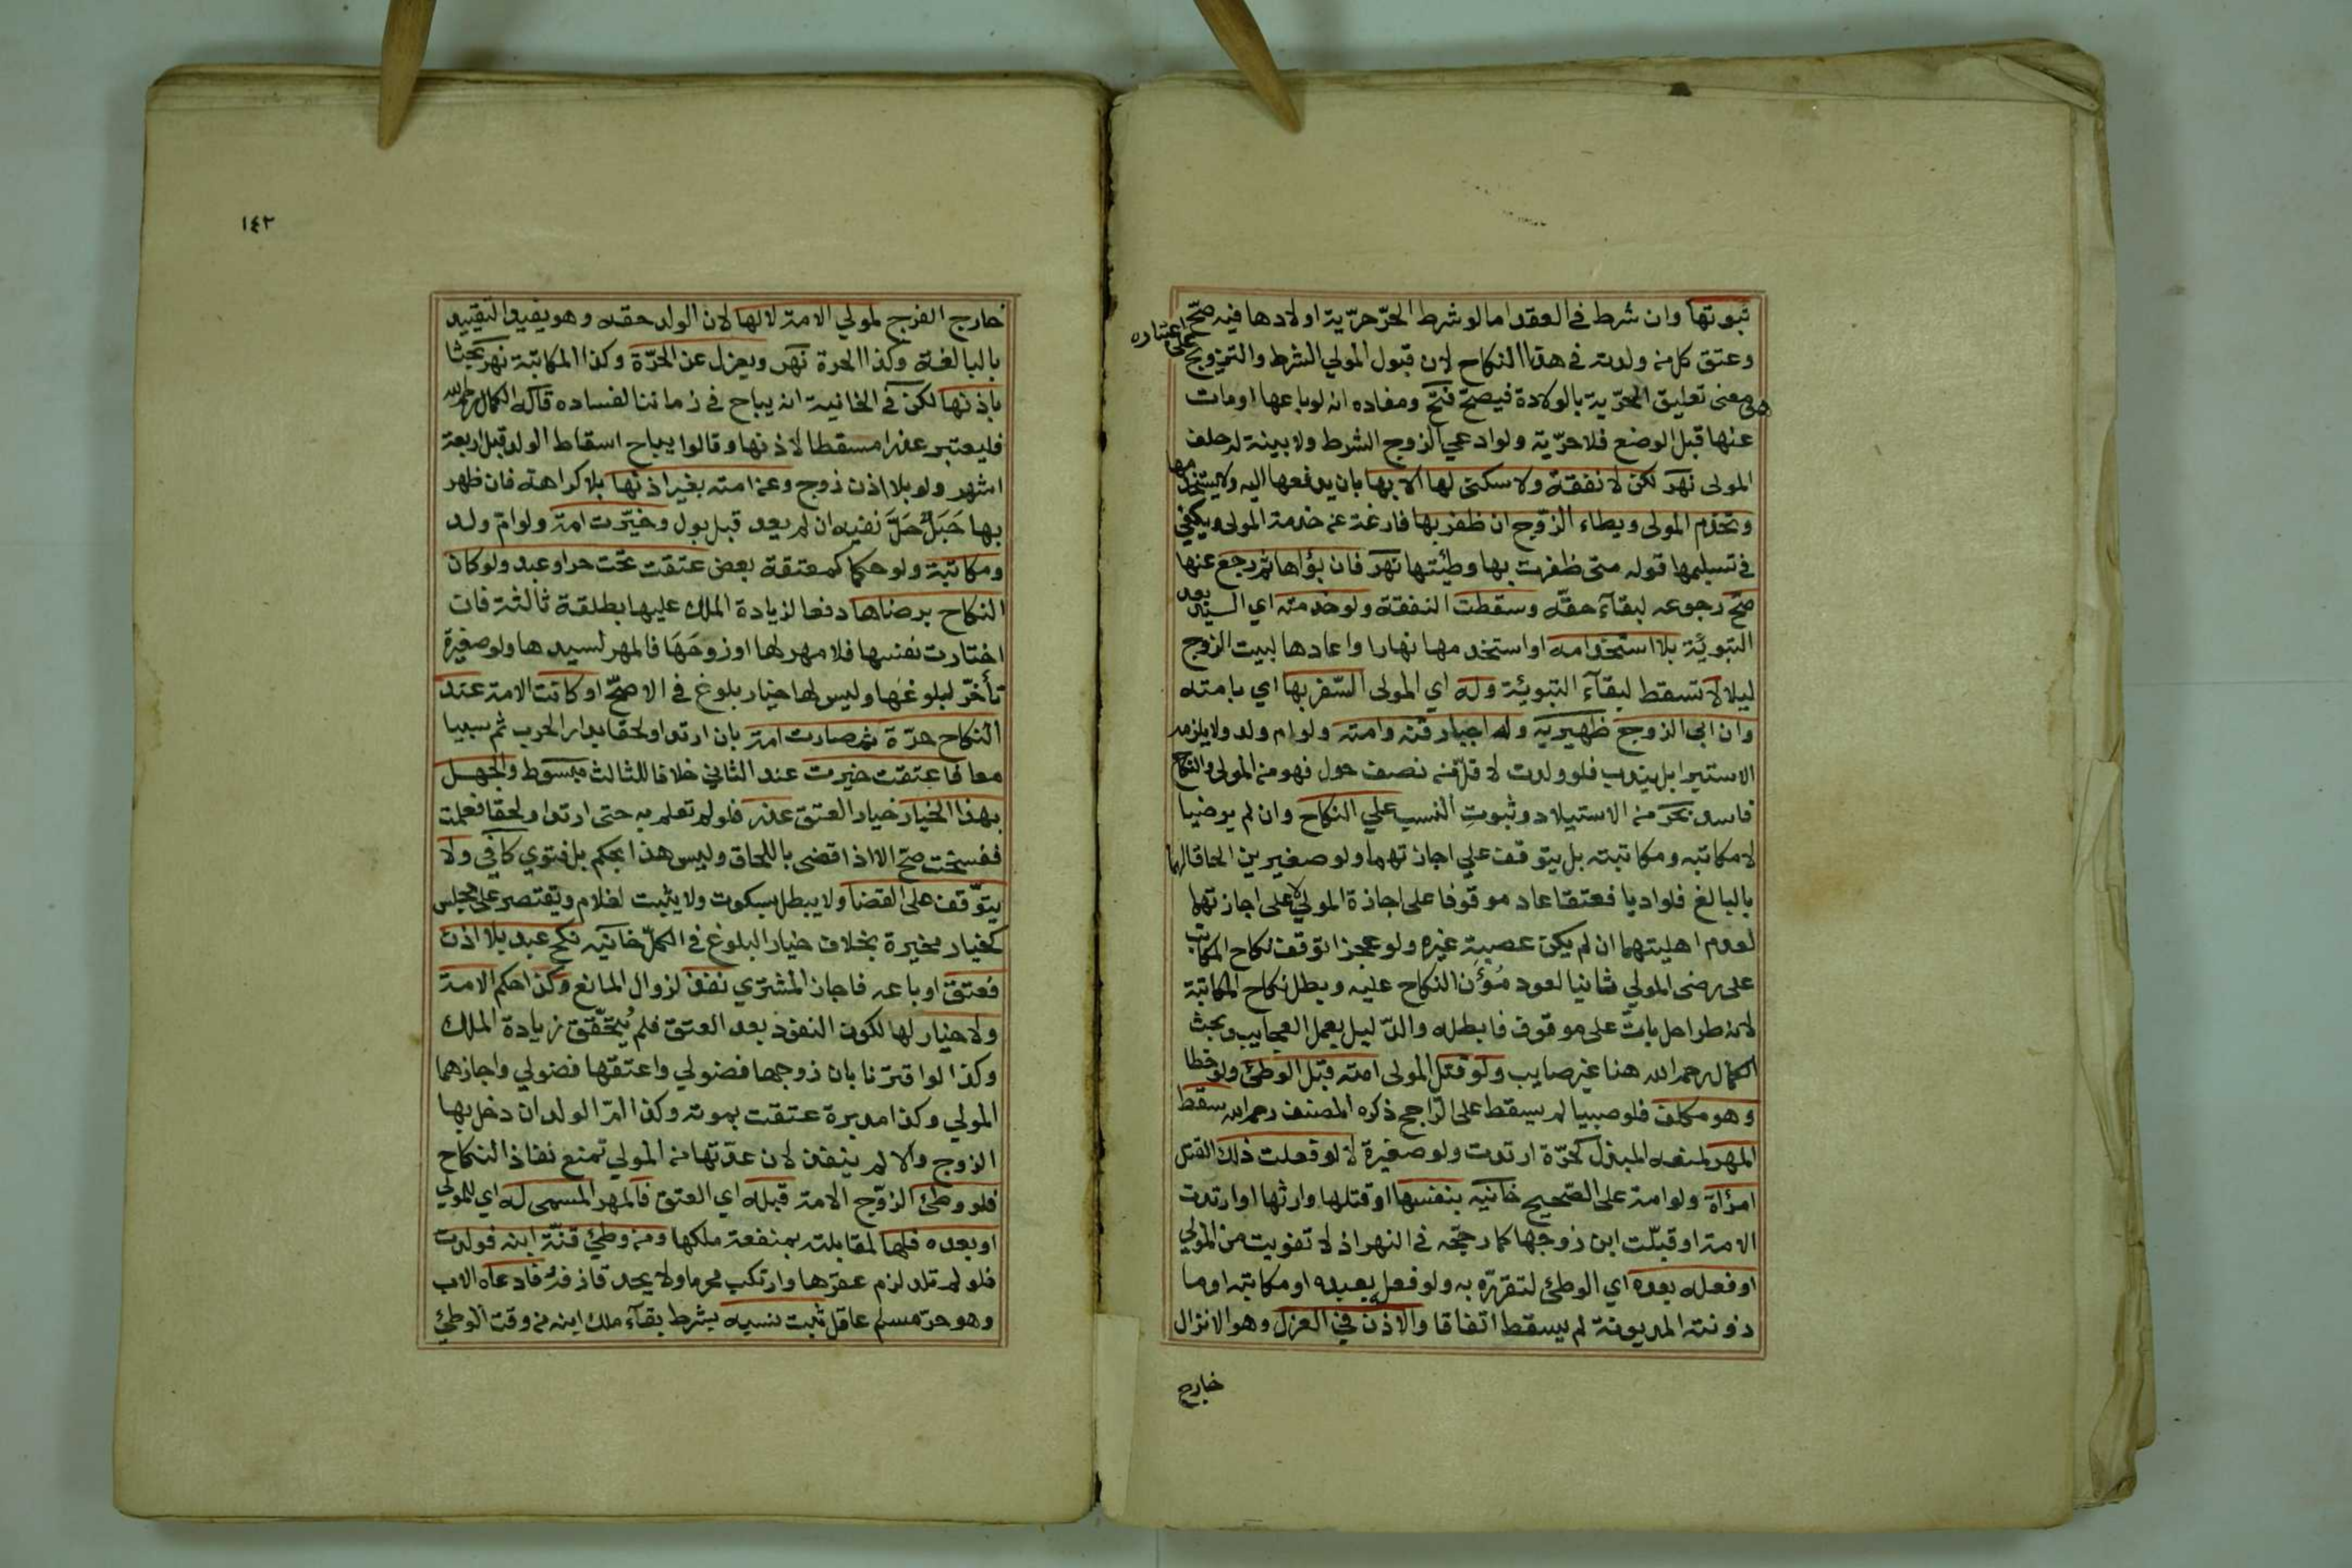 ثبوتها وان شرط في العقد اما لو شرط الحرّ حرّية اولادها فيه صحّ
وعتق كل من ولدته في هذا النكاح لان قبول المولي الشرط والتزويج
على اعتباره
هو معنى تعليق الحرّية بالولادة فيصحّ فتح ومفاده انه لو باعها او مات
عنها قبل الوضع فلا حرّية ولو ادعي الزوج الشرط ولا بينة له حلف
المولى نهر لكن لا نفقة ولا سكنى لها الا بها بان يدفعها اليه ولا يستخدمها
وتخدم المولى ويطاء الزوّج ان ظفر بها فارغة عن خدمة المولى ويكفي
في تسليمها قوله متى ظفرت بها وطيئتها نهر فان بوّاها ثم رجع عنها
صحّ رجوعه لبقاء حقّه وسقطت النفقة ولو خدمته اي السيد بعد
التبوئة بلا استخدامه او استخدمها نهارا واعادها لبيت الزوج
ليلا لا تسقط لبقآء التبوئة وله اي المولى السّفر بها اي بامته
وان ابى الزوج ظهيريه وله اجبار قنه وامته ولو ام ولد ولا يلزمه
الاستبرا بل يندب فلو ولدت لاقلّ من نصف حول فهو من المولى والنكاح
فاسد بحر من الاستيلاد وثبوت النسب علي النكاح وان لم يرضيا
لا مكاتبه ومكاتبته بل يتوقف علي اجازتهما ولو صغيرين الحاقا لهما
بالبالغ فلو اديا فعتقا عاد موقوفا على اجازة المولي لا على اجازتهما
لعدم اهليتهما ان لم يكن عصبة غيره ولو عجزا توقف نكاح المكاتب
على رضى المولي ثانيا لعود مُؤَن النكاح عليه وبطل نكاح المكاتبة
لانه طرا حل باتّ على موقوف فابطله والدّليل يعمل العجايب وبحث
الكمال رحمه الله هنا غير صايب ولو قتل المولى امته قبل الوطئ ولو خطا
وهو مكلف فلو صبيا لم يسقط على الرّاجح ذكره المصنف رحمه الله سقط
المهر لمنعه المبدل كحرّة ارتدت ولو صغيرة لا لو فعلت ذلك القتل
امرأة ولو امة على الصّحيح خانيه بنفسها او قتلها وارثها او ارتدت
الامة او قبلّت ابن زوجها كما رجّحه في النهر اذ لا تفويت من المولي
او فعله بعده اي الوطئ لتقرّره به ولو فعل بعبده او مكاتبه او ما
ذونته المديونة لم يسقط اتفاقا والاذن في العزل وهو الانزال
خارج
١٤٢
خارج الفرج لمولي الامة لا لها لان الولد حقه وهو يفيد التقييد
بالبالغة وكذا الحرة نهر ويعزل عن الحرّة وكذا المكاتبة نهر بحثا
باذنها لكن في الخانية انه يباح في زماننا لفساده قاله الكمال رحمه الله
فليعتبر عذرا مسقطا لاذنها وقالوا يباح اسقاط الولد قبل اربعة
اشهر ولو بلا اذن زوج وعن امته بغير اذنها بلا كراهة فان ظهر
بها حَبَلٌ حَلَّ نفيه ان لم يعد قبل بول وخيّرت امة ولو امّ ولد
ومكاتبة ولو حكما كمعتقة بعض عتقت تحت حر او عبد ولو كان
النكاح برضاها دفعا لزيادة الملك عليها بطلقة ثالثة فان
اختارت نفسها فلا مهر لها او زوجَهَا فالمهر لسيدها ولو صغيرة
تأخّر لبلوغهَا وليس لها خيار بلوغ في الاصحّ او كانت الامة عند
النكاح حرّة ثم صارت امة بان ارتدا ولحقا بدار الحرب ثم سبيا
معا فاعتقت خيرت عند الثاني خلافا للثالث مبسوط والجهل
بهذا الخيار خيار العتق عذر فلو لم تعلم به حتى ارتدا ولحقا فعلمت
ففسخت صحّ الا اذا قضى باللحاق وليس هذا بحكم بل فتوي كافي ولا
يتوّقف على القضا ولا يبطل بسكوت ولا يثبت لغلام ويقتصر على مجلس
كخيار مخيرة بخلاف خيار البلوغ في الكلّ خانيه نكح عبد بلا اذن
فعتق او باعه فاجاز المشتري نفذ لزوال المانع وكذا حكم الامة
ولا خيار لها لكون النفوذ بعد العتق فلم يتحقّق زيادة الملك
وكذا لو اقترنا بان زوجها فضولي واعتقها فضولي واجازهما
المولي وكذا مدبرة عتقت بموته وكذا امّ الولد ان دخل بها
الزوج والا لم ينفذ لان عدّتها من المولي تمنع نفاذ النكاح
فلو وطئ الزوّج الامة قبله اي العتق فالمهر المسمى له اي للمولي
او بعده فلها لمقابلته بمنفعة ملكها ومن وطئ قنّة ابنه فولدت
فلو لم تلد لزم عقرها وارتكب محرما ولا يحد قاذفه فادعاه الاب
وهو حرّ مسلم عاقل ثبت نسبه بشرط بقآء ملك ابنه من وقت الوطئ